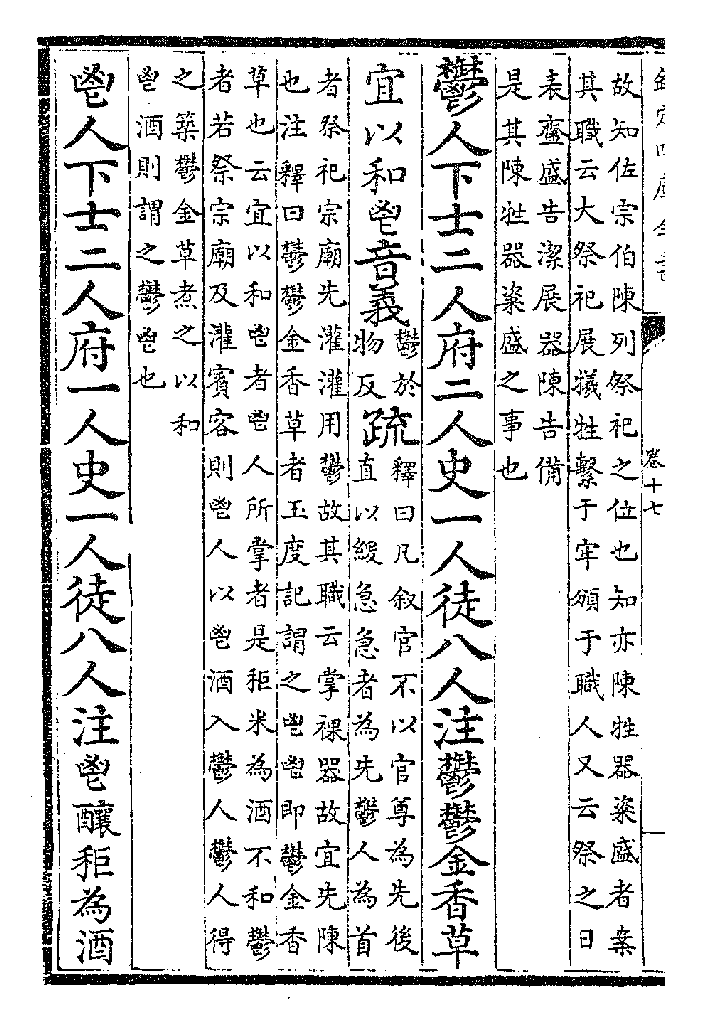 欽定四庫全書
卷十七
故知佐宗伯陳列祭祀之位也知亦陳牲器粢盛者案
其職云大祭祀展犧牲繫于牢頒于職人又云祭之日
表齍盛告潔展器陳告備
是其陳牲器粢盛之事也
鬱人下士二人府二人史一人徒八人注鬱鬱金香草
宜以和鬯音義
鬱於
物反
疏
釋曰凡敘官不以官尊為先後
直以緩急急者為先鬱人為首
者祭祀宗廟先灌灌用鬱故其職云掌祼器故宜先陳
也注釋曰鬱鬱金香草者王度記謂之鬯鬯即鬱金香
草也云宜以和鬯者鬯人所掌者是秬米為酒不和鬱
者若祭宗廟及灌賓客則鬯人以鬯酒入鬱人鬱人得
之築鬱金草煮之以和
鬯酒則謂之鬱鬯也
鬯人下士二人府一人史一人徒八人注鬯釀秬為酒